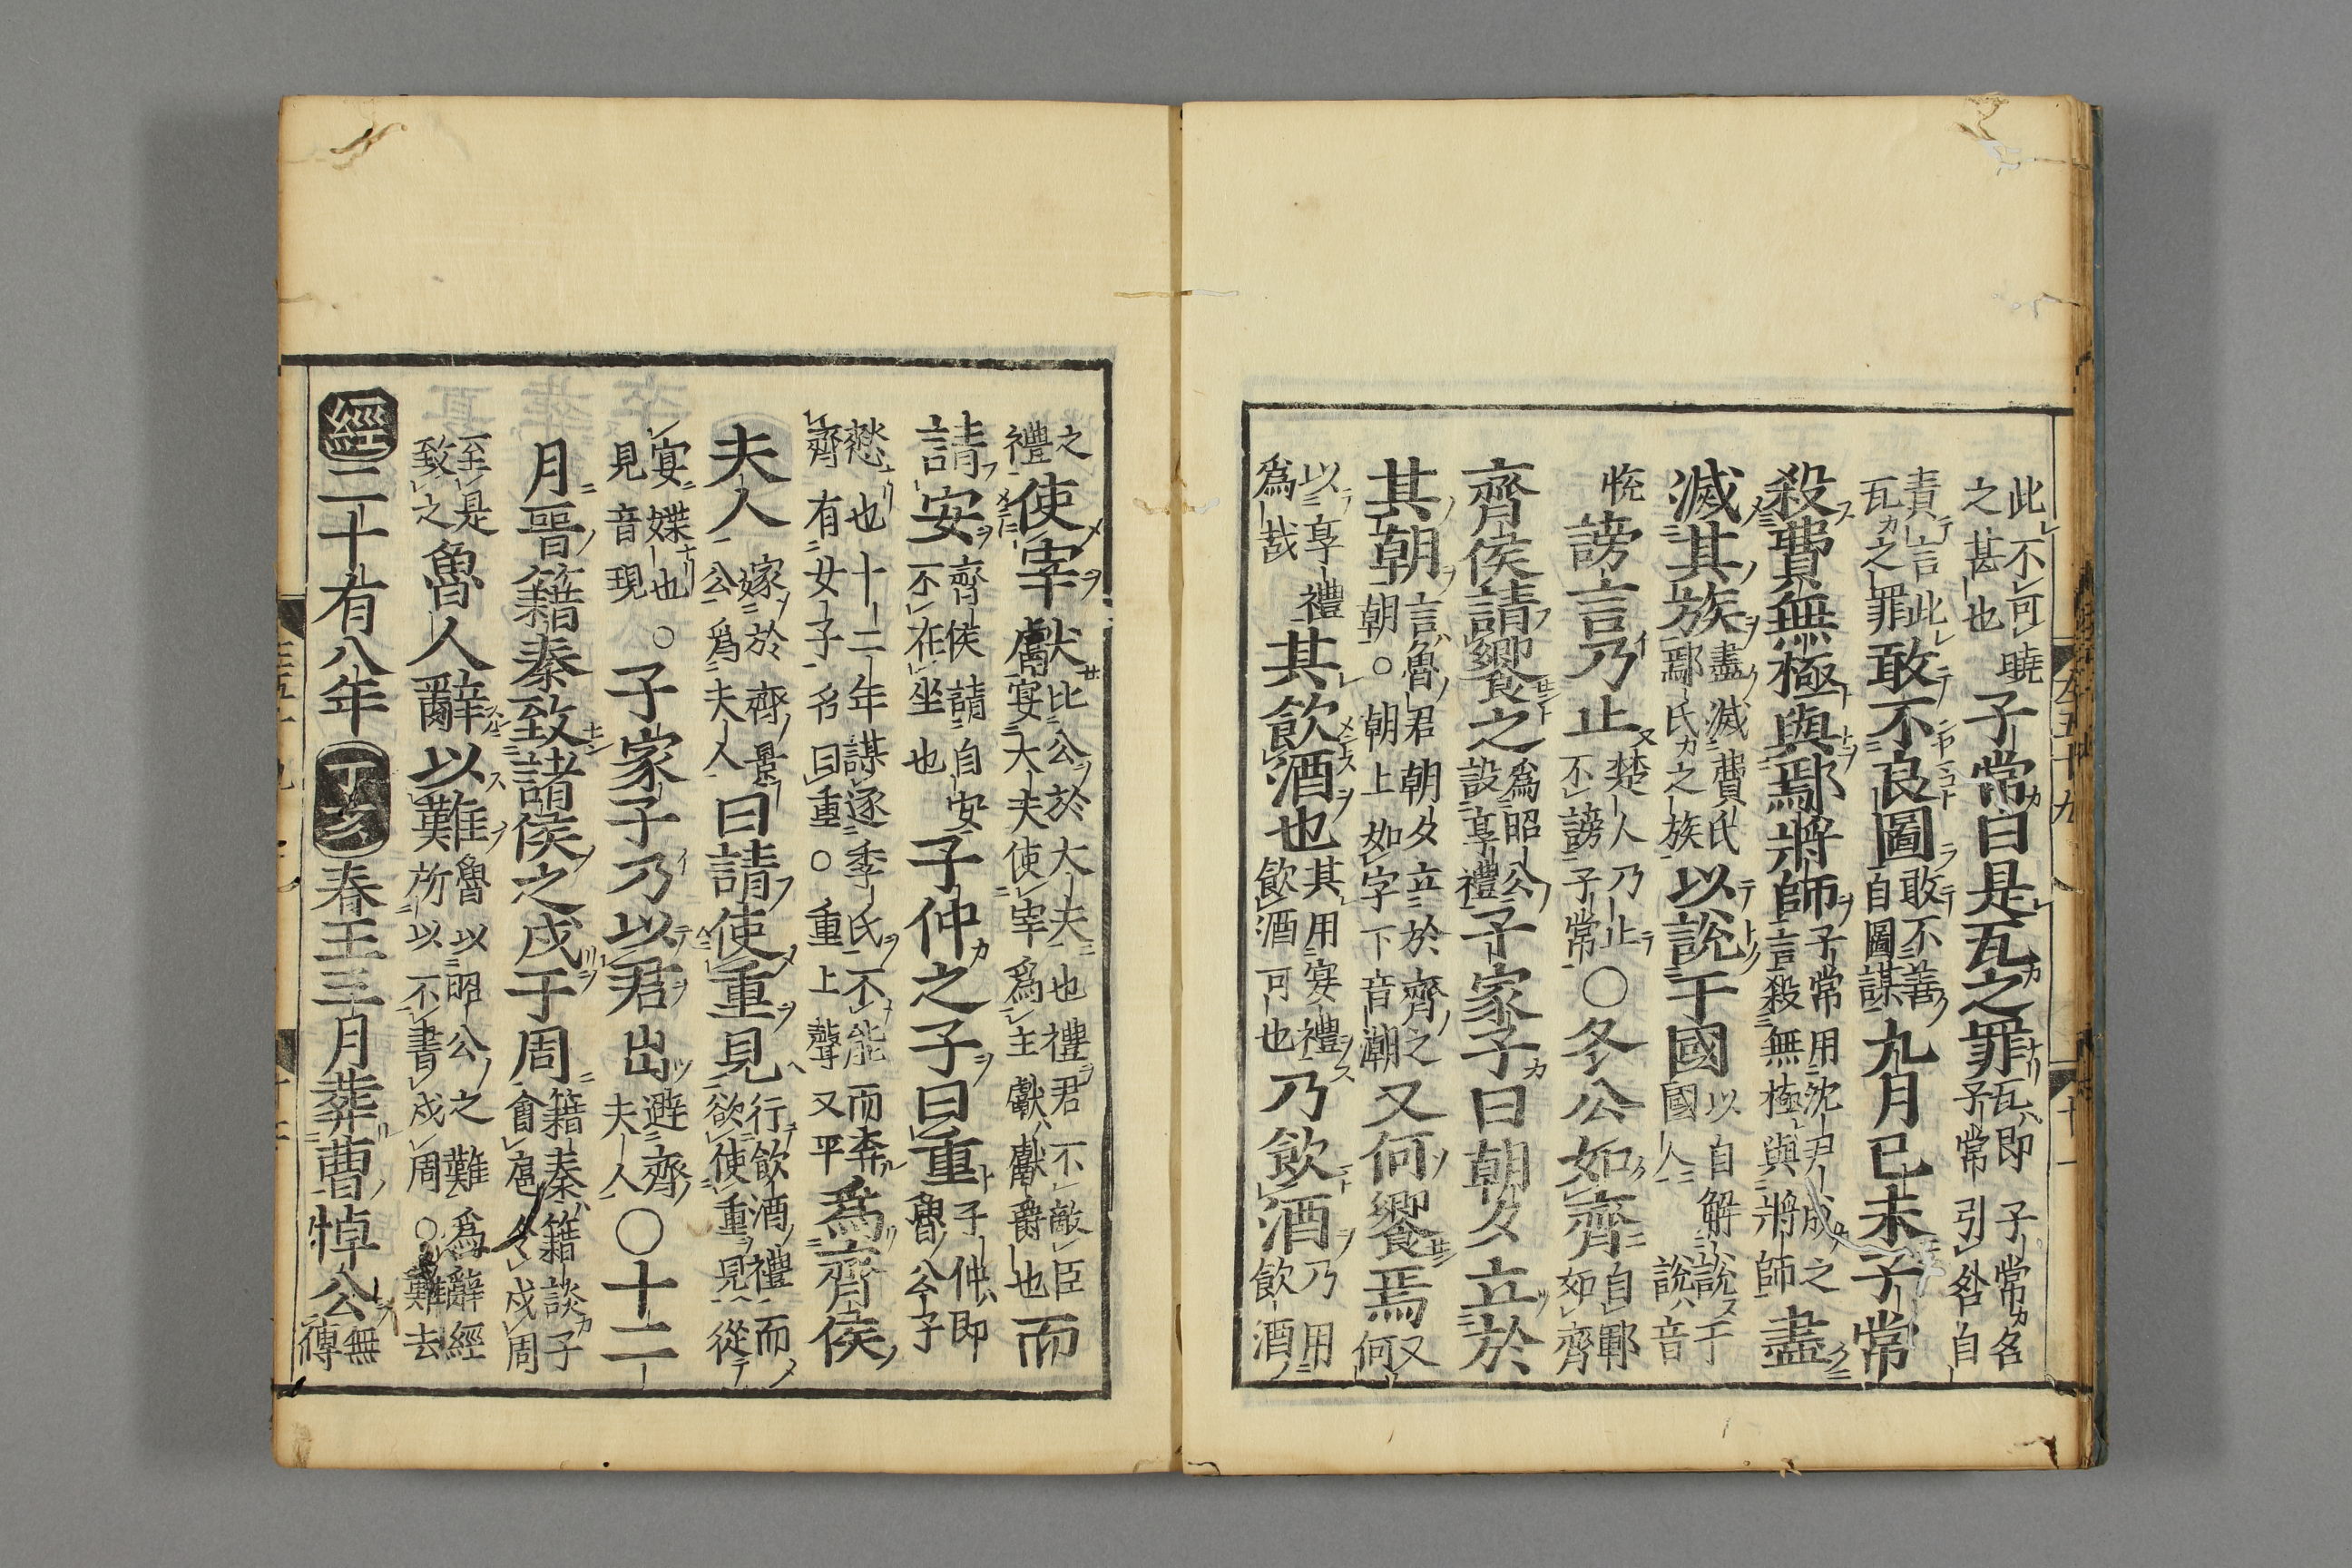 此不可曉
之甚也
子常曰是瓦之罪
瓦即子常名
子常引咎自
責言此
瓦之罪
敢不良圖
敢不善
自圖謀
九月己未子常
殺費無極與鄢將師
子常用沈尹戌之
言殺無極與將師
盡
滅其族
盡滅費氏
鄢氏之族
以說于國
以自解說于
國人說音
悅
謗言乃止
楚人乃止
不謗子常
○冬公如齊
自鄆
如齊
齊侯請饗之
爲昭公
設享禮
子家子曰朝夕立於
其朝
言魯君朝夕立於齊之
朝○朝上如字下音潮
又何饗焉
又
何
以享禮
爲哉
其飲酒也
其用宴禮
飲酒可也
乃飲酒
乃用
飲酒
之
禮
使宰獻
比公於大夫也禮君不敵臣
宴大夫使宰爲主獻獻爵也
而
請安
齊侯請自安
不在坐也
子仲之子曰重
子仲即
魯公子
憖也十二年謀逐季氏不能而奔
齊有女子名曰重○重上聲又平
爲齊侯
夫人
嫁於齊景
公爲夫人
曰請使重見
行飲酒禮而
欲使重見從
宴媟也○
見音現
子家子乃以君出
避齊
夫人
○十二
月晉籍秦致諸侯之戍于周
籍秦籍談子
會扈令戍周
至是
致之
魯人辭以難
魯以昭公之難爲辭經
所以不書戍周○難去
經二十有八年丁亥春王三月葬曹悼公
無
傳